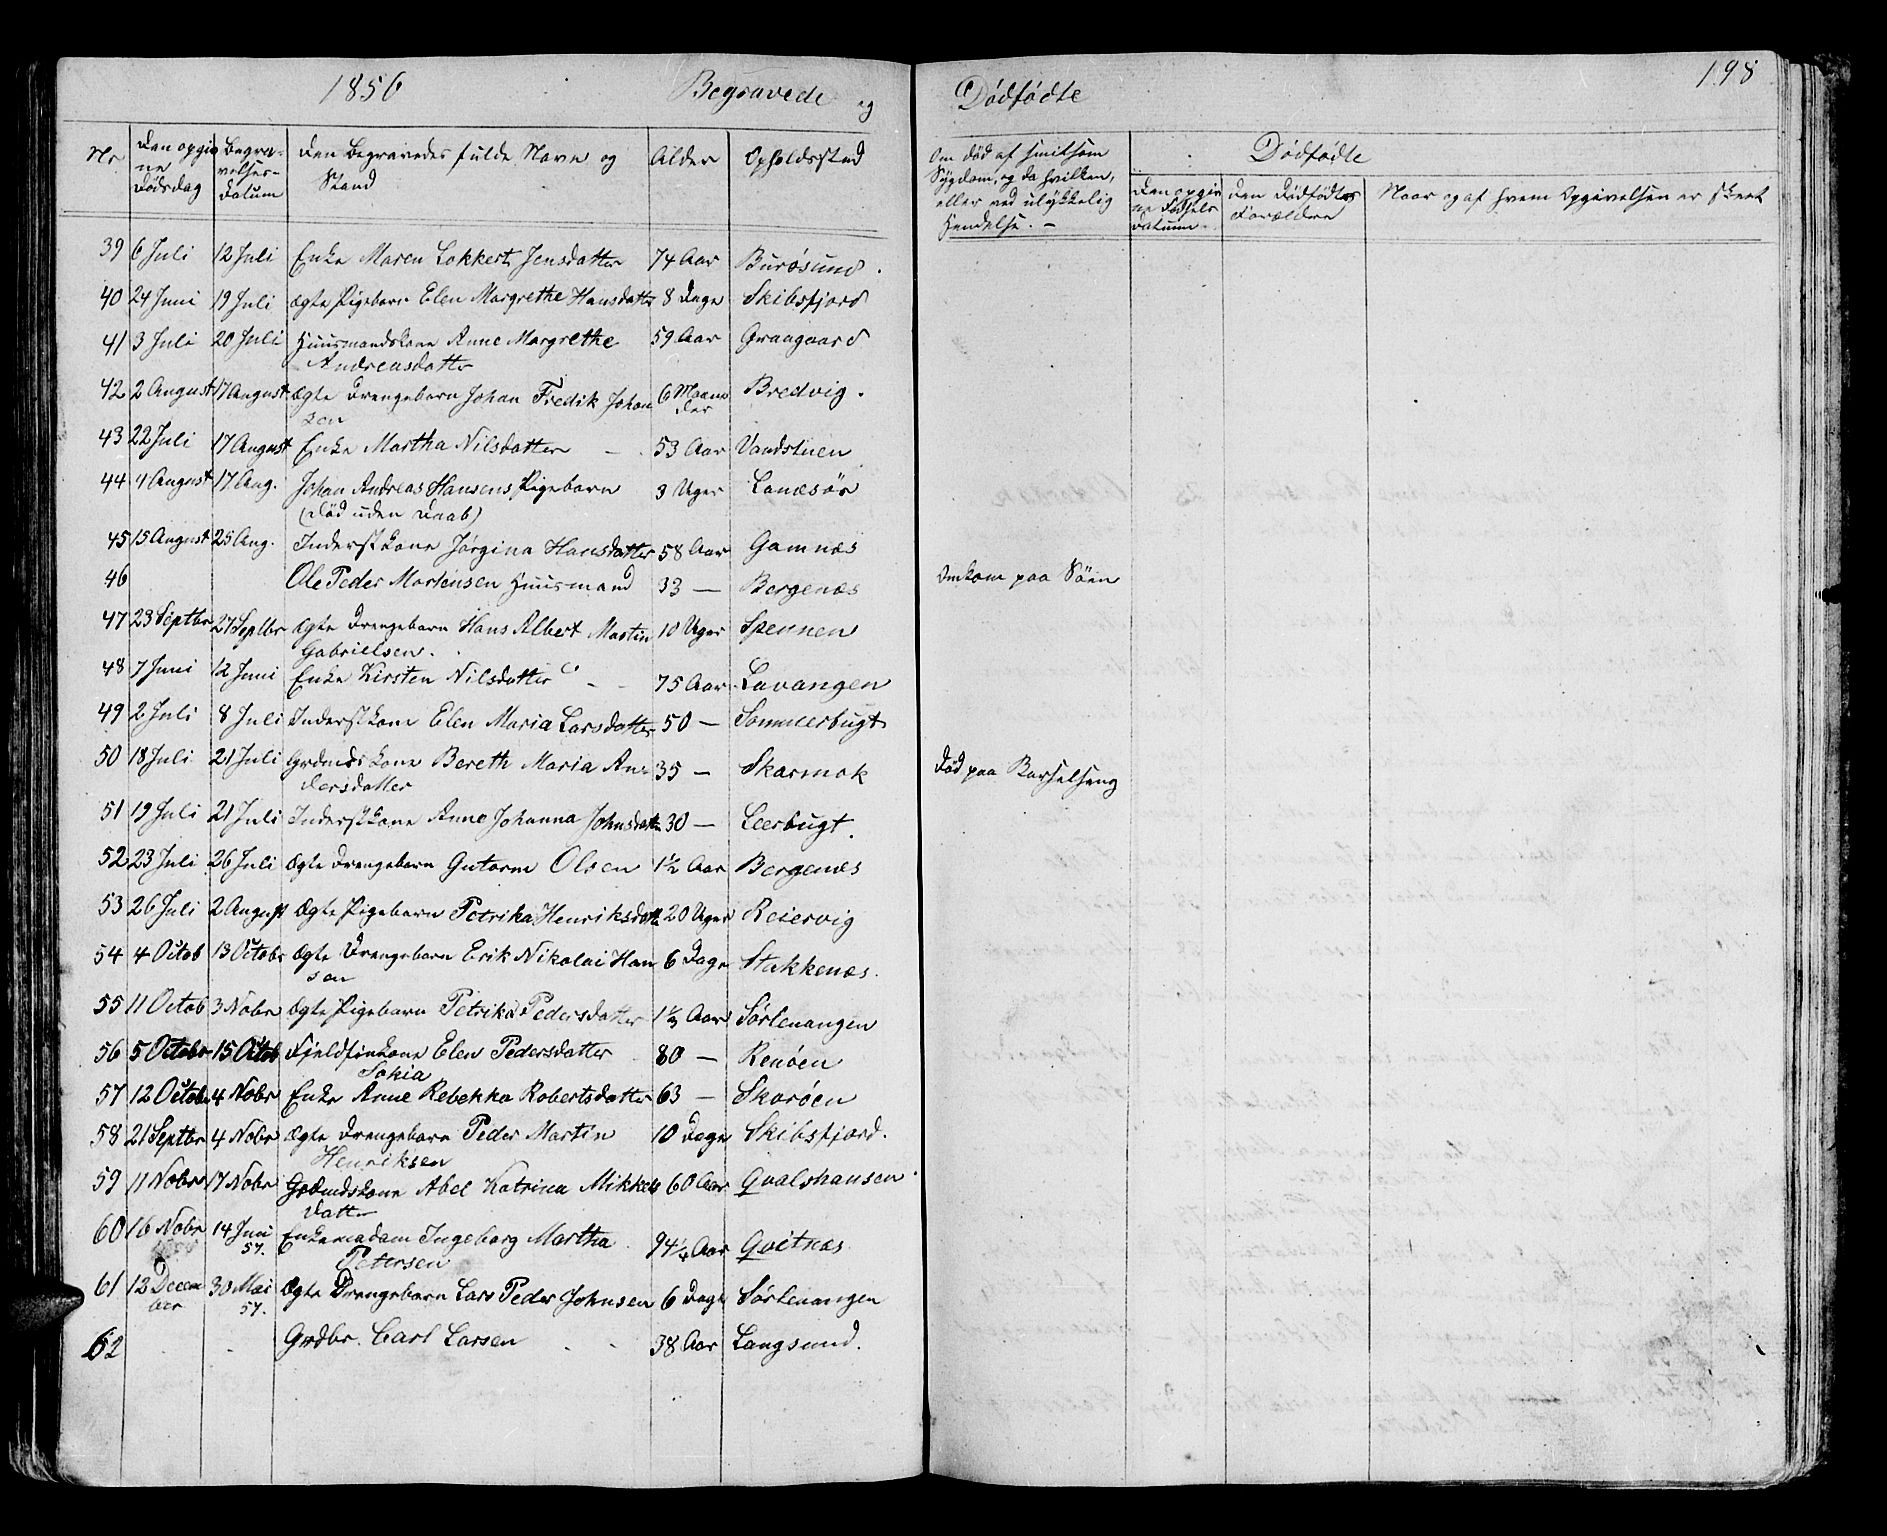 1856 Begravede og Dødfødte 198
Nr
Den opgivne Dødsdag
Begravelses-Datum
Den Begravedes fulde Navn og Stand
Alder
Opholdssted
Om død af smitsom Sygdom, og da hvilken, eller ved ulykkelig Hendelse. -
Dødfødte
Den opgivne Fødsels Datum.
Den Dødfødtes Forældre
Naar og af hvem Opgivelsen er skeet
39 6 Juli 12 Juli Enke Maren Lokkert Jensdatter 74 Aar Burøsund.
40 24 Juni 19 Juli ægte Pigebarn Elen Margrethe Hansdatter 8 Dage Skibsfjord
41 3 Juli 20 Juli Huusmandskone Anne Margrethe 59 Aar Graagaard
Andreasdatter
42 2 August 17 August ægte Drengebarn Johan Fredik Johan 6 Maaneder Bredvig.
sen
43 22 Juli 17 August Enke Martha Nilsdatter 53 Aar Vandstuen
44 4 August 17 Aug. Johan Andreas Hansens Pigebarn 3 Uger Lanesør
(død uden Daab)
45 15 August 25 Aug. Inderstkone Jørgina Hansdatter 58 Aar Gamnæs
46 Ole Peder Mortensen Huusmand 33 — Bergenæs Omkom paa Søen
47 23 Septbr 27 Septbr ægte Drengebarn Hans Albert Martin 10 Uger Spennen
Gabrielsen.
48 7 Juni 12 Juni Enke Kirsten Nilsdatter 75 Aar Lavangen
49 2 Juli 8 Juli Inderstkone Elen Maria Larsdatter 50 — Sommerbugt
50 18 Juli 21 Juli Grdmdskone Bereth Maria An- 35 — Skarmok Død paa Barselseng
dersdatter
51 19 Juli 21 Juli Inderstkone Anne Johanna Johnsdatter 30 — Leerbugt.
52 23 Juli 26 Juli ægte Drengebarn Gutorm Olsen 1½ Aar Bergenæs
53 26 Juli 2 August ægte Pigebarn Petrika Henriksdatt 20 Uger Reiervig
54 4 Octob 13 Octobr ægte Drengebarn Erik Nikolai Han 6 Dage Stakkenæs.
sen
55 11 Octob 3 Nobr ægte Pigebarn Petrika Pedersdatter Aar Sørlenangen
56 5 Octobr 15 Octob Fjeldfinkone Elen Pedersdatter 80 — Renøen
Sokia
57 12 Octobr 4 Nobr Enke Anne Rebekka Robertsdatter 63 — Skorøen
58 21 Septbr 4 Nobr ægte Drengebarn Peder Martin 10 Dage Skibsfjord.
Henriksen
59 11 Nobr 17 Nobr Grdmdskone Abel Katrina Mikkels 60 Aar Qvalshausen
datter
60 16 Nobr 14 Juni 57. Enkemadam Ingeborg Martha 94¼ Aar Qvitnæs
Petersen
61 12 December 30 Mai 57. ægte Drengebarn Lars Peder Johnsen 6 Dage Sørlenangen
62 Grdbr. Carl Larsen 38 Aar Langsund.